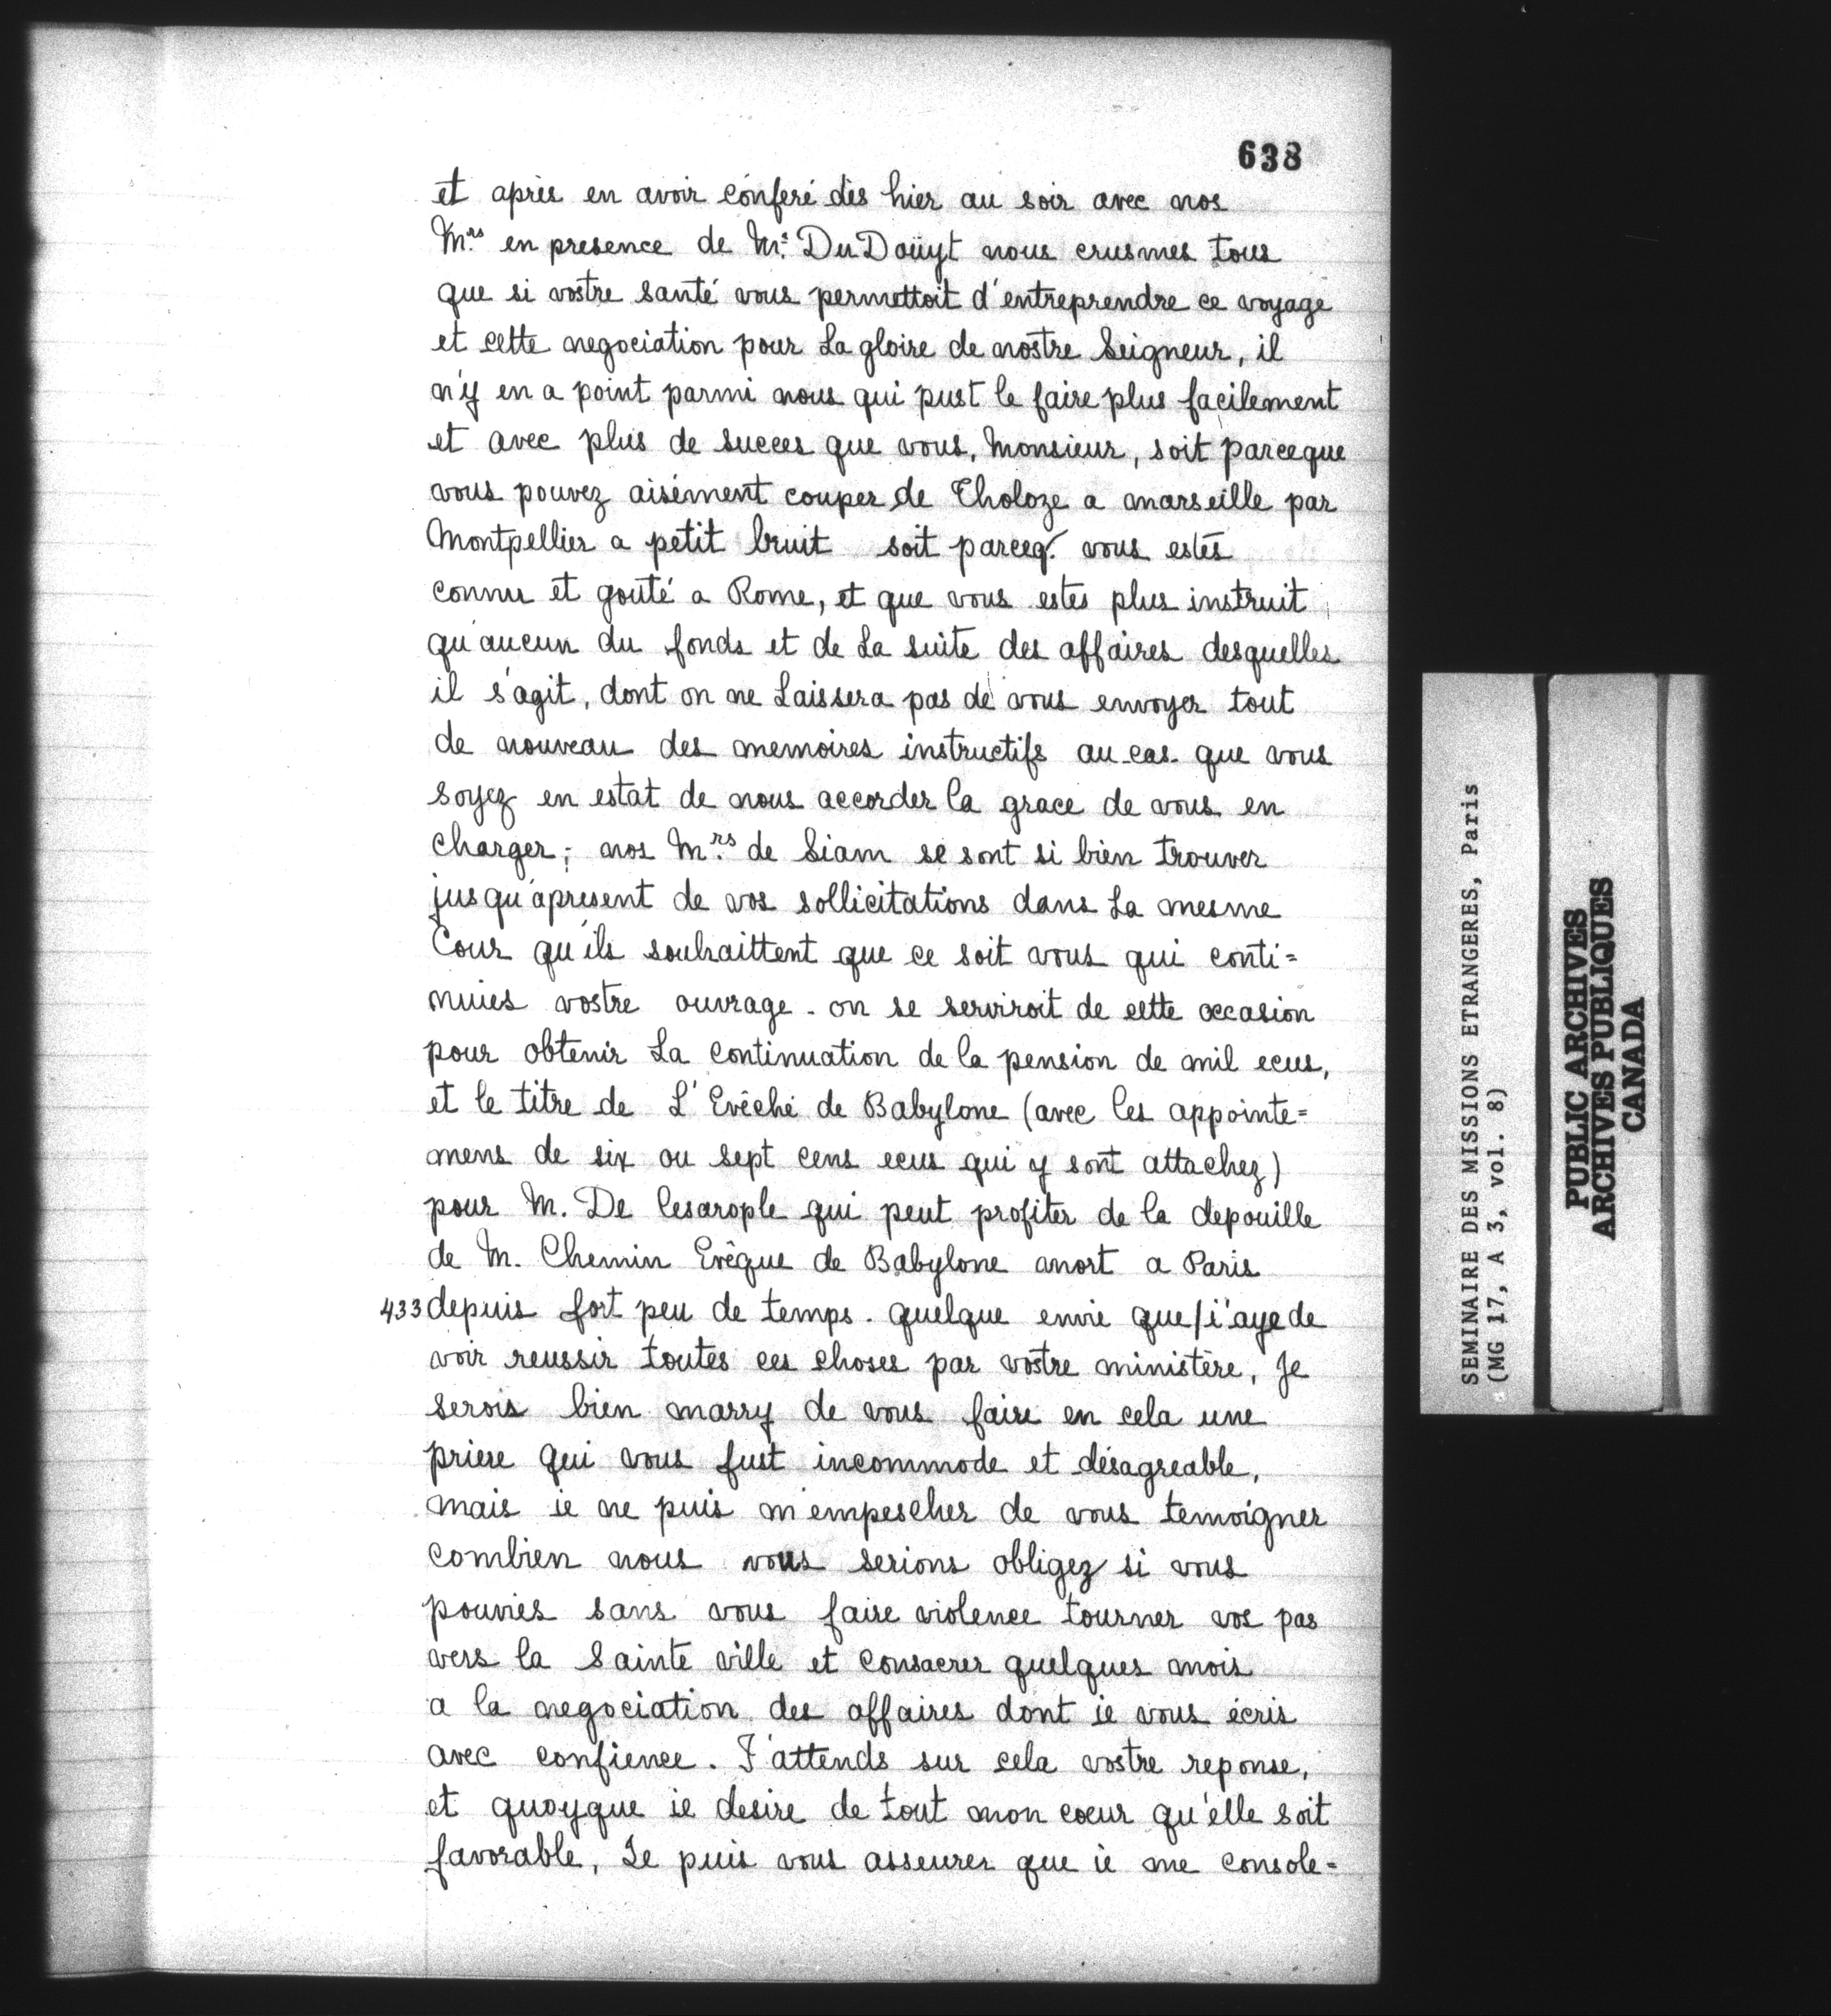 638
et après en avoir conferé dès hier au soir avec nos
Mrs. en presence de Mr. Du Doüyt nous crusmes tous
que si vostre santé vous permettoit d'entreprendre ce voyage
et cette negociation pour La gloire de nostre Seigneur, il
n'y en a point parmi nous qui pust le faire plus facilement
et avec plus de succes que vous, Monsieur, soit parceque
vous pouvez aisément couper de Tholoze a marseille par
Montpellier a petit bruit soit parceq. vous estés
connu et gouté a Rome, et que vous estes plus instruit
qu'aucun du fonds et de La suite des affaires desquelles
il s'agit, dont on ne Laissera pas de vous envoyer tout
de nouveau des memoires instructifs au-cas que vous
soyez en estat de nous accorder la grace de vous en
charger; nos Mrs. de Siam se sont si bien trouver
jusqu'apresent de vos sollicitations dans La mesme
Cour qu'ils souhaittent que ce soit vous qui conti=
nuiés vostre ouvrage. on se serviroit de cette occasion
pour obtenir La continuation de la pension de mil ecus,
et le titre de L'Evêché de Babylone (avec les appointe=
mens de six ou sept cens ecus qui y sont attachez)
pour M. De Cesarople qui peut profiter de la depouille
de M. Chemin Evêque de Babylone mort a Paris
433 depuis fort peu de temps. quelque envie que/i'aye de
voir reussir toutes ces choses par vostre ministère, Je
serois bien marry de vous faire en cela une
priere qui vous fust incommode et désagreable,
mais ie ne puis m'empescher de vous temoigner
combien nous vous serions obligez si vous
pouviés sans vous faire violence tourner vos pas
vers la Sainte ville et consacrer quelques mois
a la negociation des affaires dont ie vous écris
avec confience. J'attends sur cela vostre reponse,
et quoyque ie desire de tout mon coeur qu'elle soit
favorable, Je puis vous asseurer que ie me console=
SEMINAIRE DES MISSIONS ETRANGERES, Paris
(MG 17, A 3, vol. 8)
PUBLIC ARCHIVES
ARCHIVES PUBLIQUES
CANADA